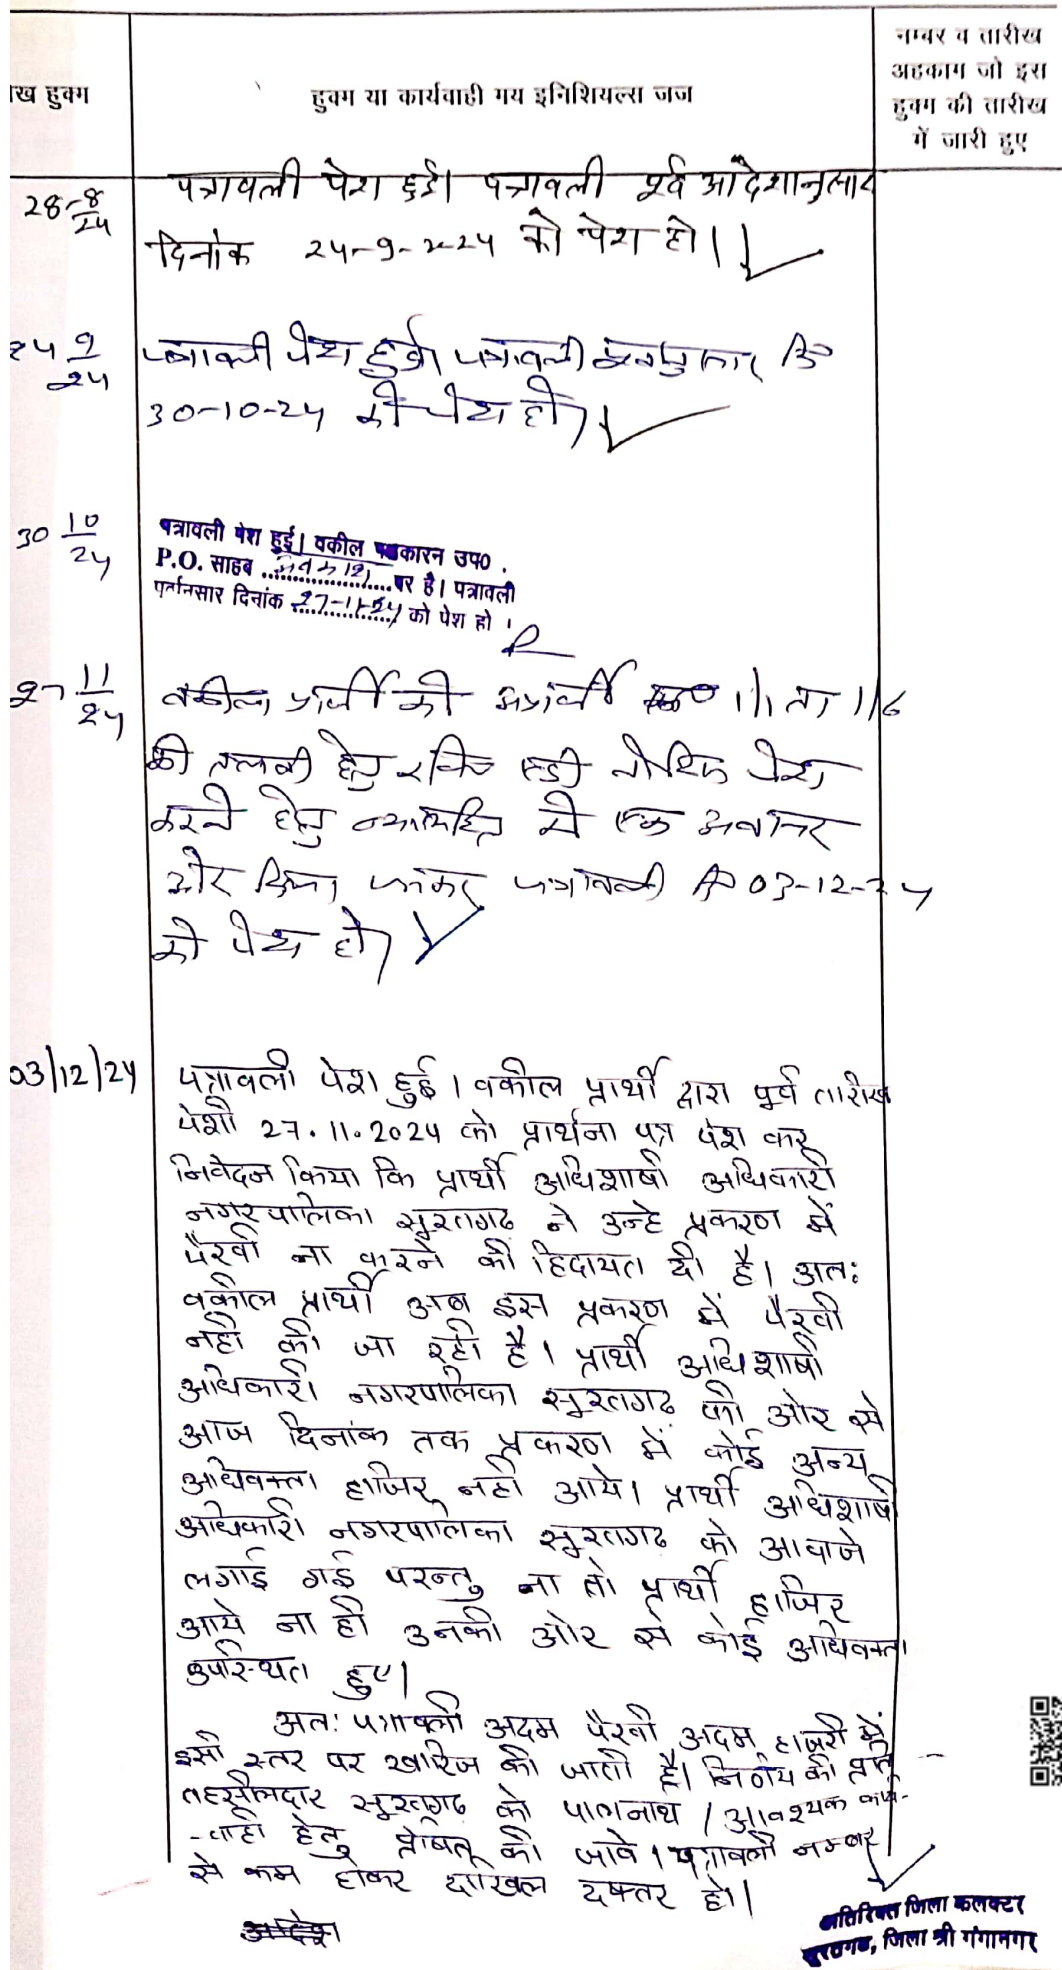 नम्बर व तारीख
अहकाम जो इस
हुक्म की तारीख
में जारी हुए
ख हुक्म
हुक्म या कार्यवाही मय इनिशियल्स जज
28-8/24
पत्रावली पेश हुई। पत्रावली पूर्व आदेशानुसार
दिनांक 24-9-2024 को पेश हो।
24 9/24
पत्रावली पेश हुई। पत्रावली
30-10-24 को पेश हो।
30 10/24
पत्रावली पेश हुई। वकील पक्षकारन उप०.
P.O. साहब अवकाश पर है। पत्रावली
पूर्वानुसार दिनांक 27-11-24 को पेश हो
27 11/24
वकील प्रार्थी को अप्रार्थी 1/1 ता 1/6
की तलबी हेतु रजि० एडी नोटिस पेश
करने हेतु न्यायहित में एक अवसर
और दिया जाकर पत्रावली दि० 03-12-24
को पेश हो।
03/12/24
पत्रावली पेश हुई। वकील प्रार्थी द्वारा पूर्व तारीख
पेशी 27.11.2024 को प्रार्थना पत्र पेश कर
निवेदन किया कि प्रार्थी अधिशाषी अधिकारी
नगरपालिका सूरतगढ ने उन्हे प्रकरण में
पैरवी ना करने की हिदायत दी है। अतः
वकील प्रार्थी अब इस प्रकरण में पैरवी
नही की जा रही है। प्रार्थी अधिशाषी
अधिकारी नगरपालिका सूरतगढ की ओर से
आज दिनांक तक प्रकरण में कोई अन्य
अधिवक्ता हाजिर नही आये। प्रार्थी अधिशाषी
अधिकारी नगरपालिका सूरतगढ को आवाजे
लगाई गई परन्तु ना तो प्रार्थी हाजिर
आये ना ही उनकी ओर से कोई अधिवक्ता
उपस्थित हुए।
अतः पत्रावली अदम पैरवी अदम हाजरी में
इसी स्तर पर खारिज की जाती है। निर्णय की प्रति
तहसीलदार सूरतगढ को पालनार्थ / आवश्यक कार्य-
-वाही हेतु प्रेषित की जावे। पत्रावली नम्बर
से कम होकर दाखिल दफ्तर हो।
अतिरिक्त जिला कलक्टर
सूरतगढ, जिला श्री गंगानगर